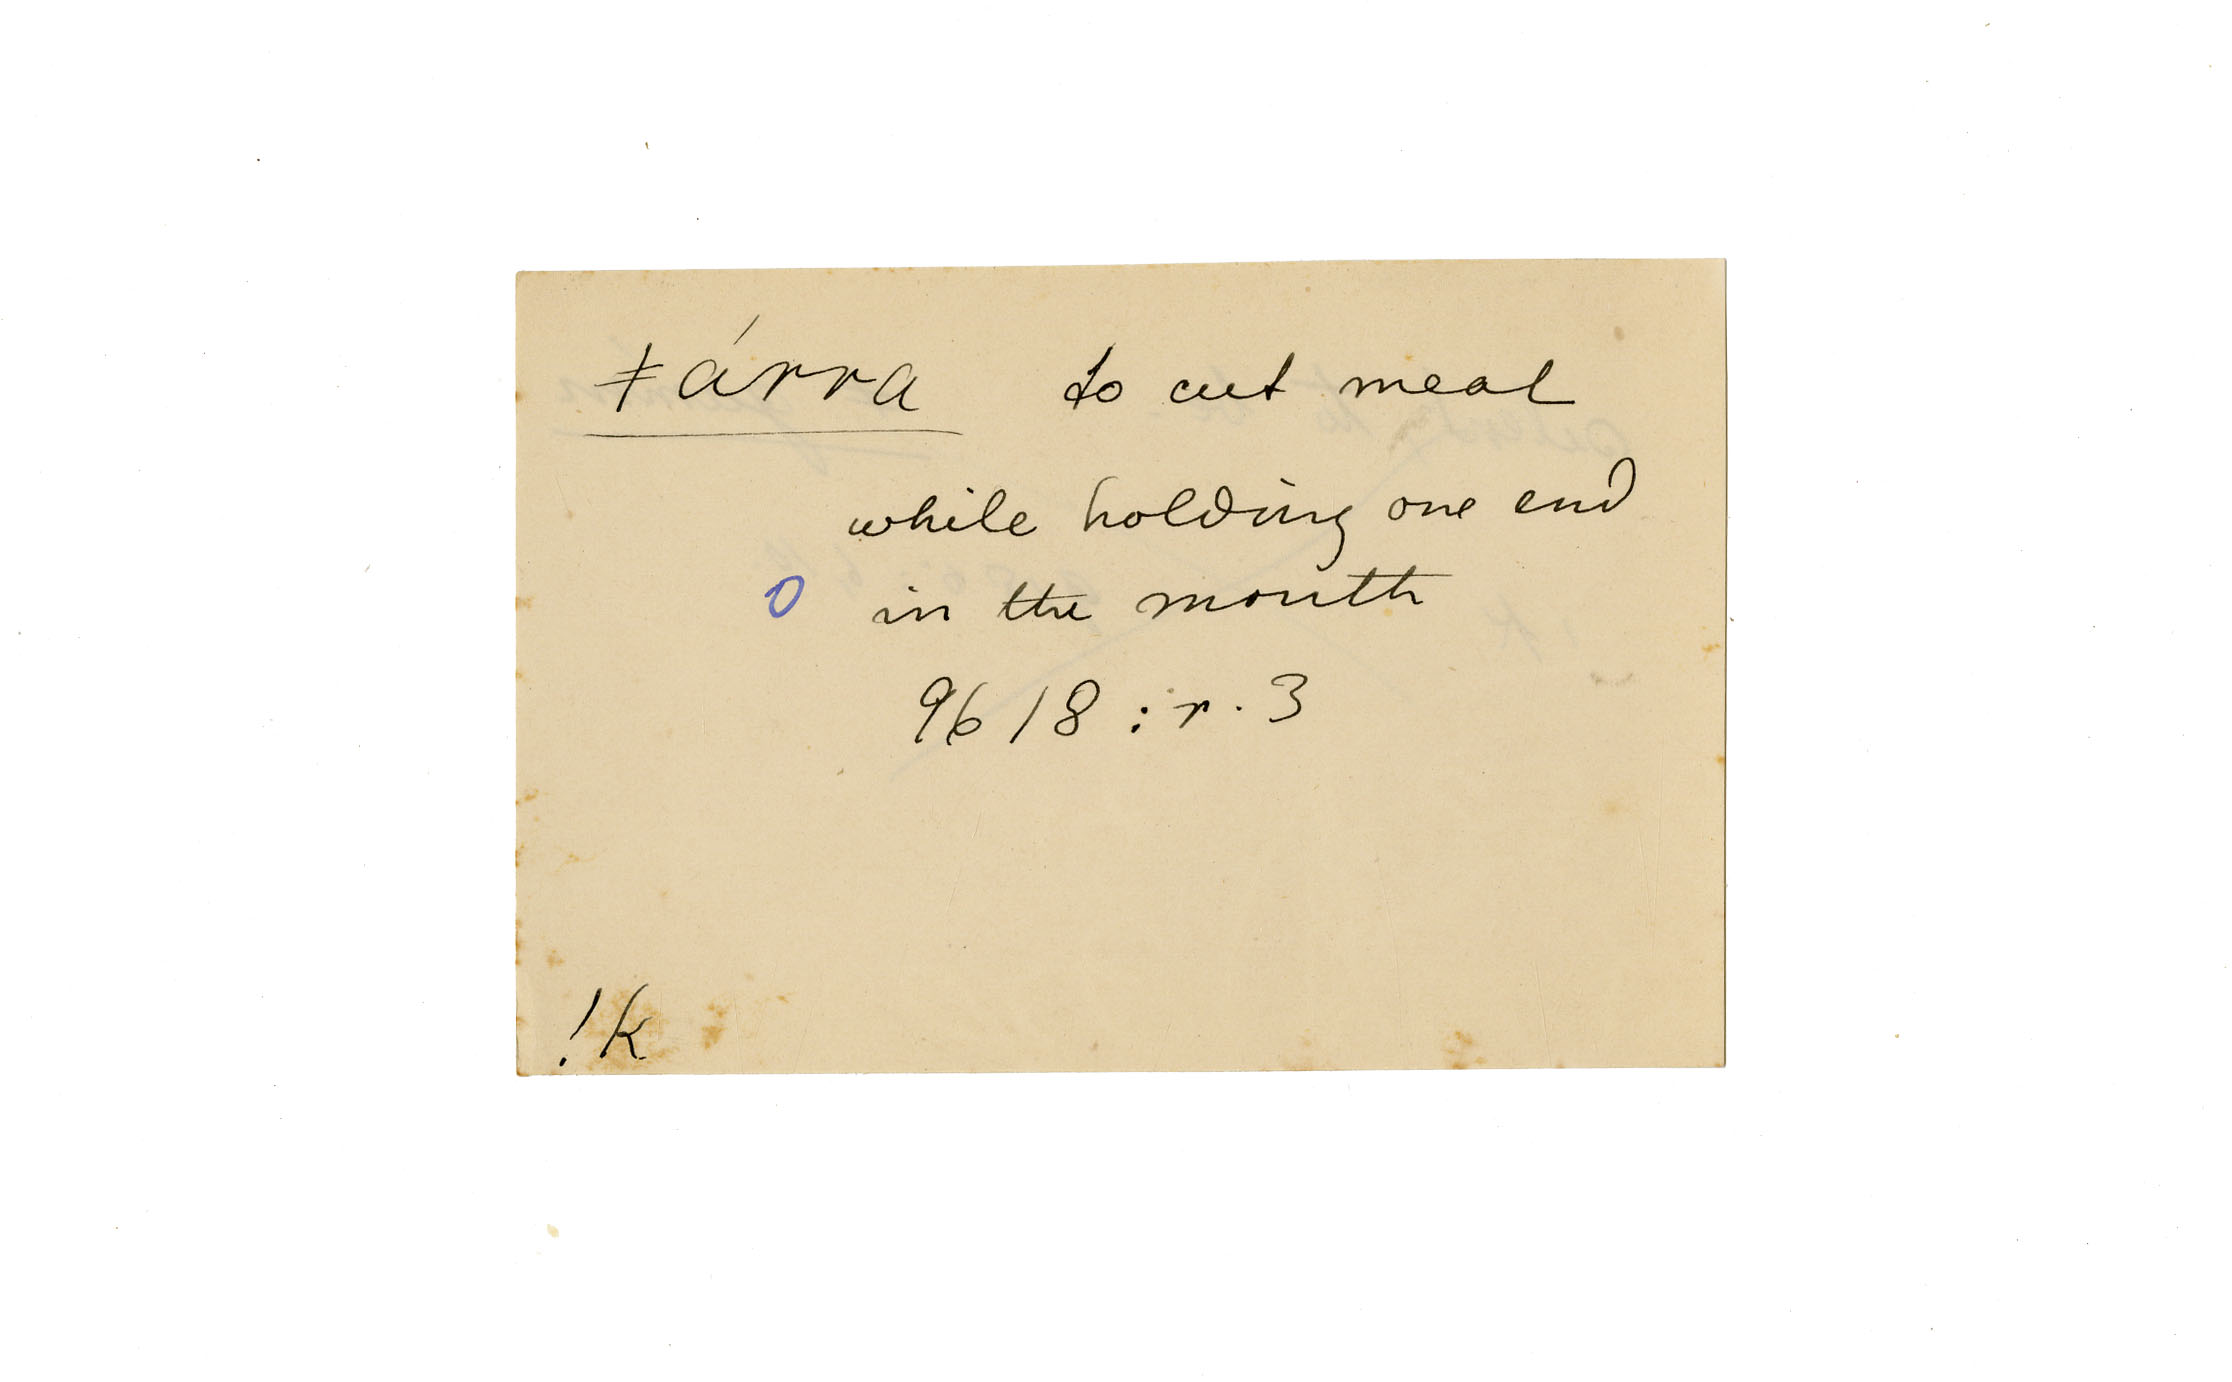 ǂárra to cut meat
while holding one end
0 in the mouth
9618 : r. 3
!k